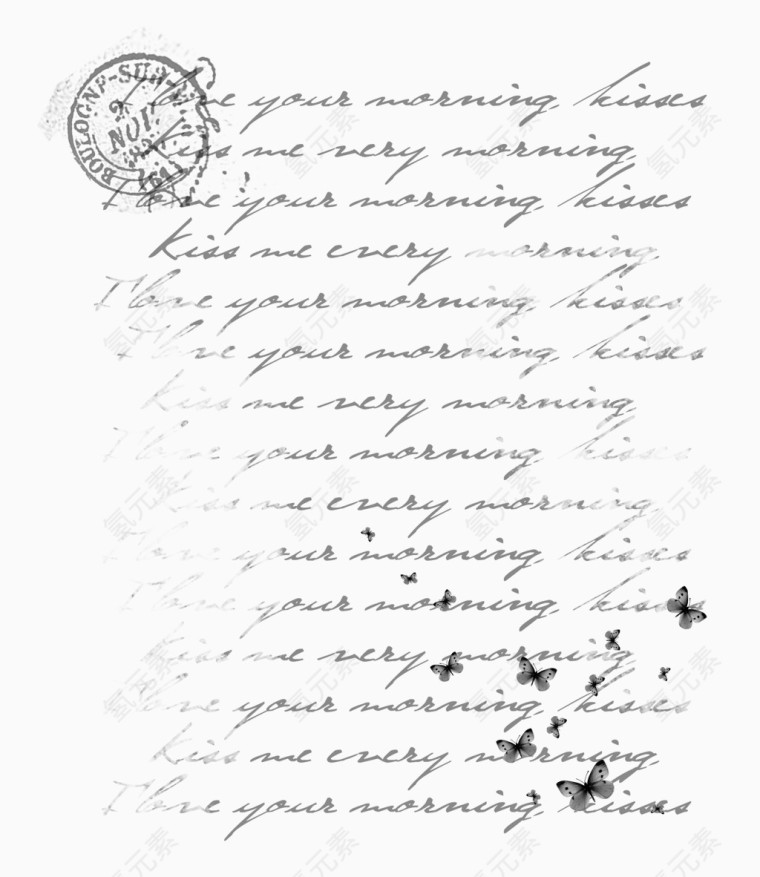 BOULOGNE-SUR-M
NOV.
I love your morning kisses
Kiss me very morning,
I love your morning, kisses
Kiss me every morning,
I love your morning, kisses
I love your morning, kisses
Kiss me very morning,
I love your morning, kisses
Kiss me every morning,
I love your morning, kisses
I love your morning, kisses
Kiss me very morning,
I love your morning, kisses
Kiss me every morning,
I love your morning, kisses
氢元素